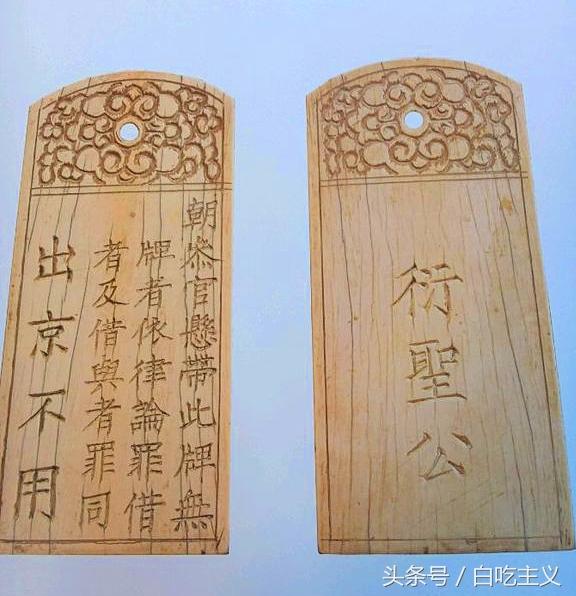 朝叅官懸帶此牌無
牌者依律論罪借
者及借與者罪同
出京不用
衍聖公
头条号 / 白吃主义